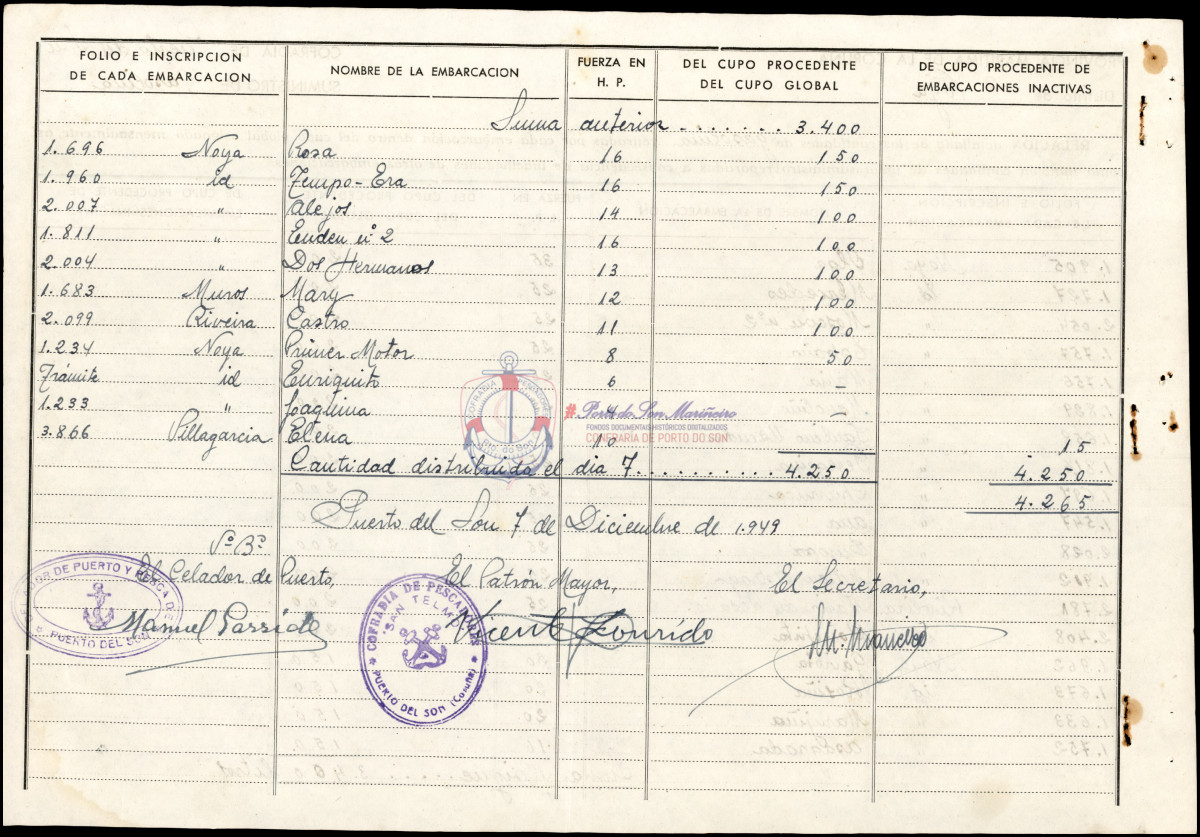 FOLIO E INSCRIPCION DE CADA EMBARCACION NOMBRE DE LA EMBARCACION FUERZA EN H. P. DEL CUPO PROCEDENTE DEL CUPO GLOBAL DE CUPO PROCEDENTE DE EMBARCACIONES INACTIVAS
Suma anterior . . . . . . . 3.400
1.696 Noya Rosa 16 150
1.960 id Tempo-Era 16 150
2.007 " Alejos 14 100
1.811 " nº 2 16 100
2.004 " Dos Hermanos 13 100
1.683 Muros Mary 12 100
2.099 Riveira Castro 11 100
1.234 Noya Primer Motor 8 50
Trámite id Enriquito 6 –
1.233 " Joaquina 4 –
3.866 Villagarcia Elena 10 15
Cantidad distribuida el dia 7 . . . . . . . . . . 4.250 4.250
4.265
Puerto del Son 7 de Diciembre de 1.949
Vº Bº
El Celador de Puerto, El Patrón Mayor, El Secretario,
Manuel Vicente
DE PUERTO Y PESCA DE
PUERTO DEL SON
COFRADIA DE PESCADORES
"SAN TELMO"
PUERTO DEL SON (Coruña)
COFRADIA PESCADORES
Pto. do Son
# Porto do Son Mariñeiro
FONDOS DOCUMENTAIS HISTÓRICOS DIXITALIZADOS
CONFRARIA DE PORTO DO SON